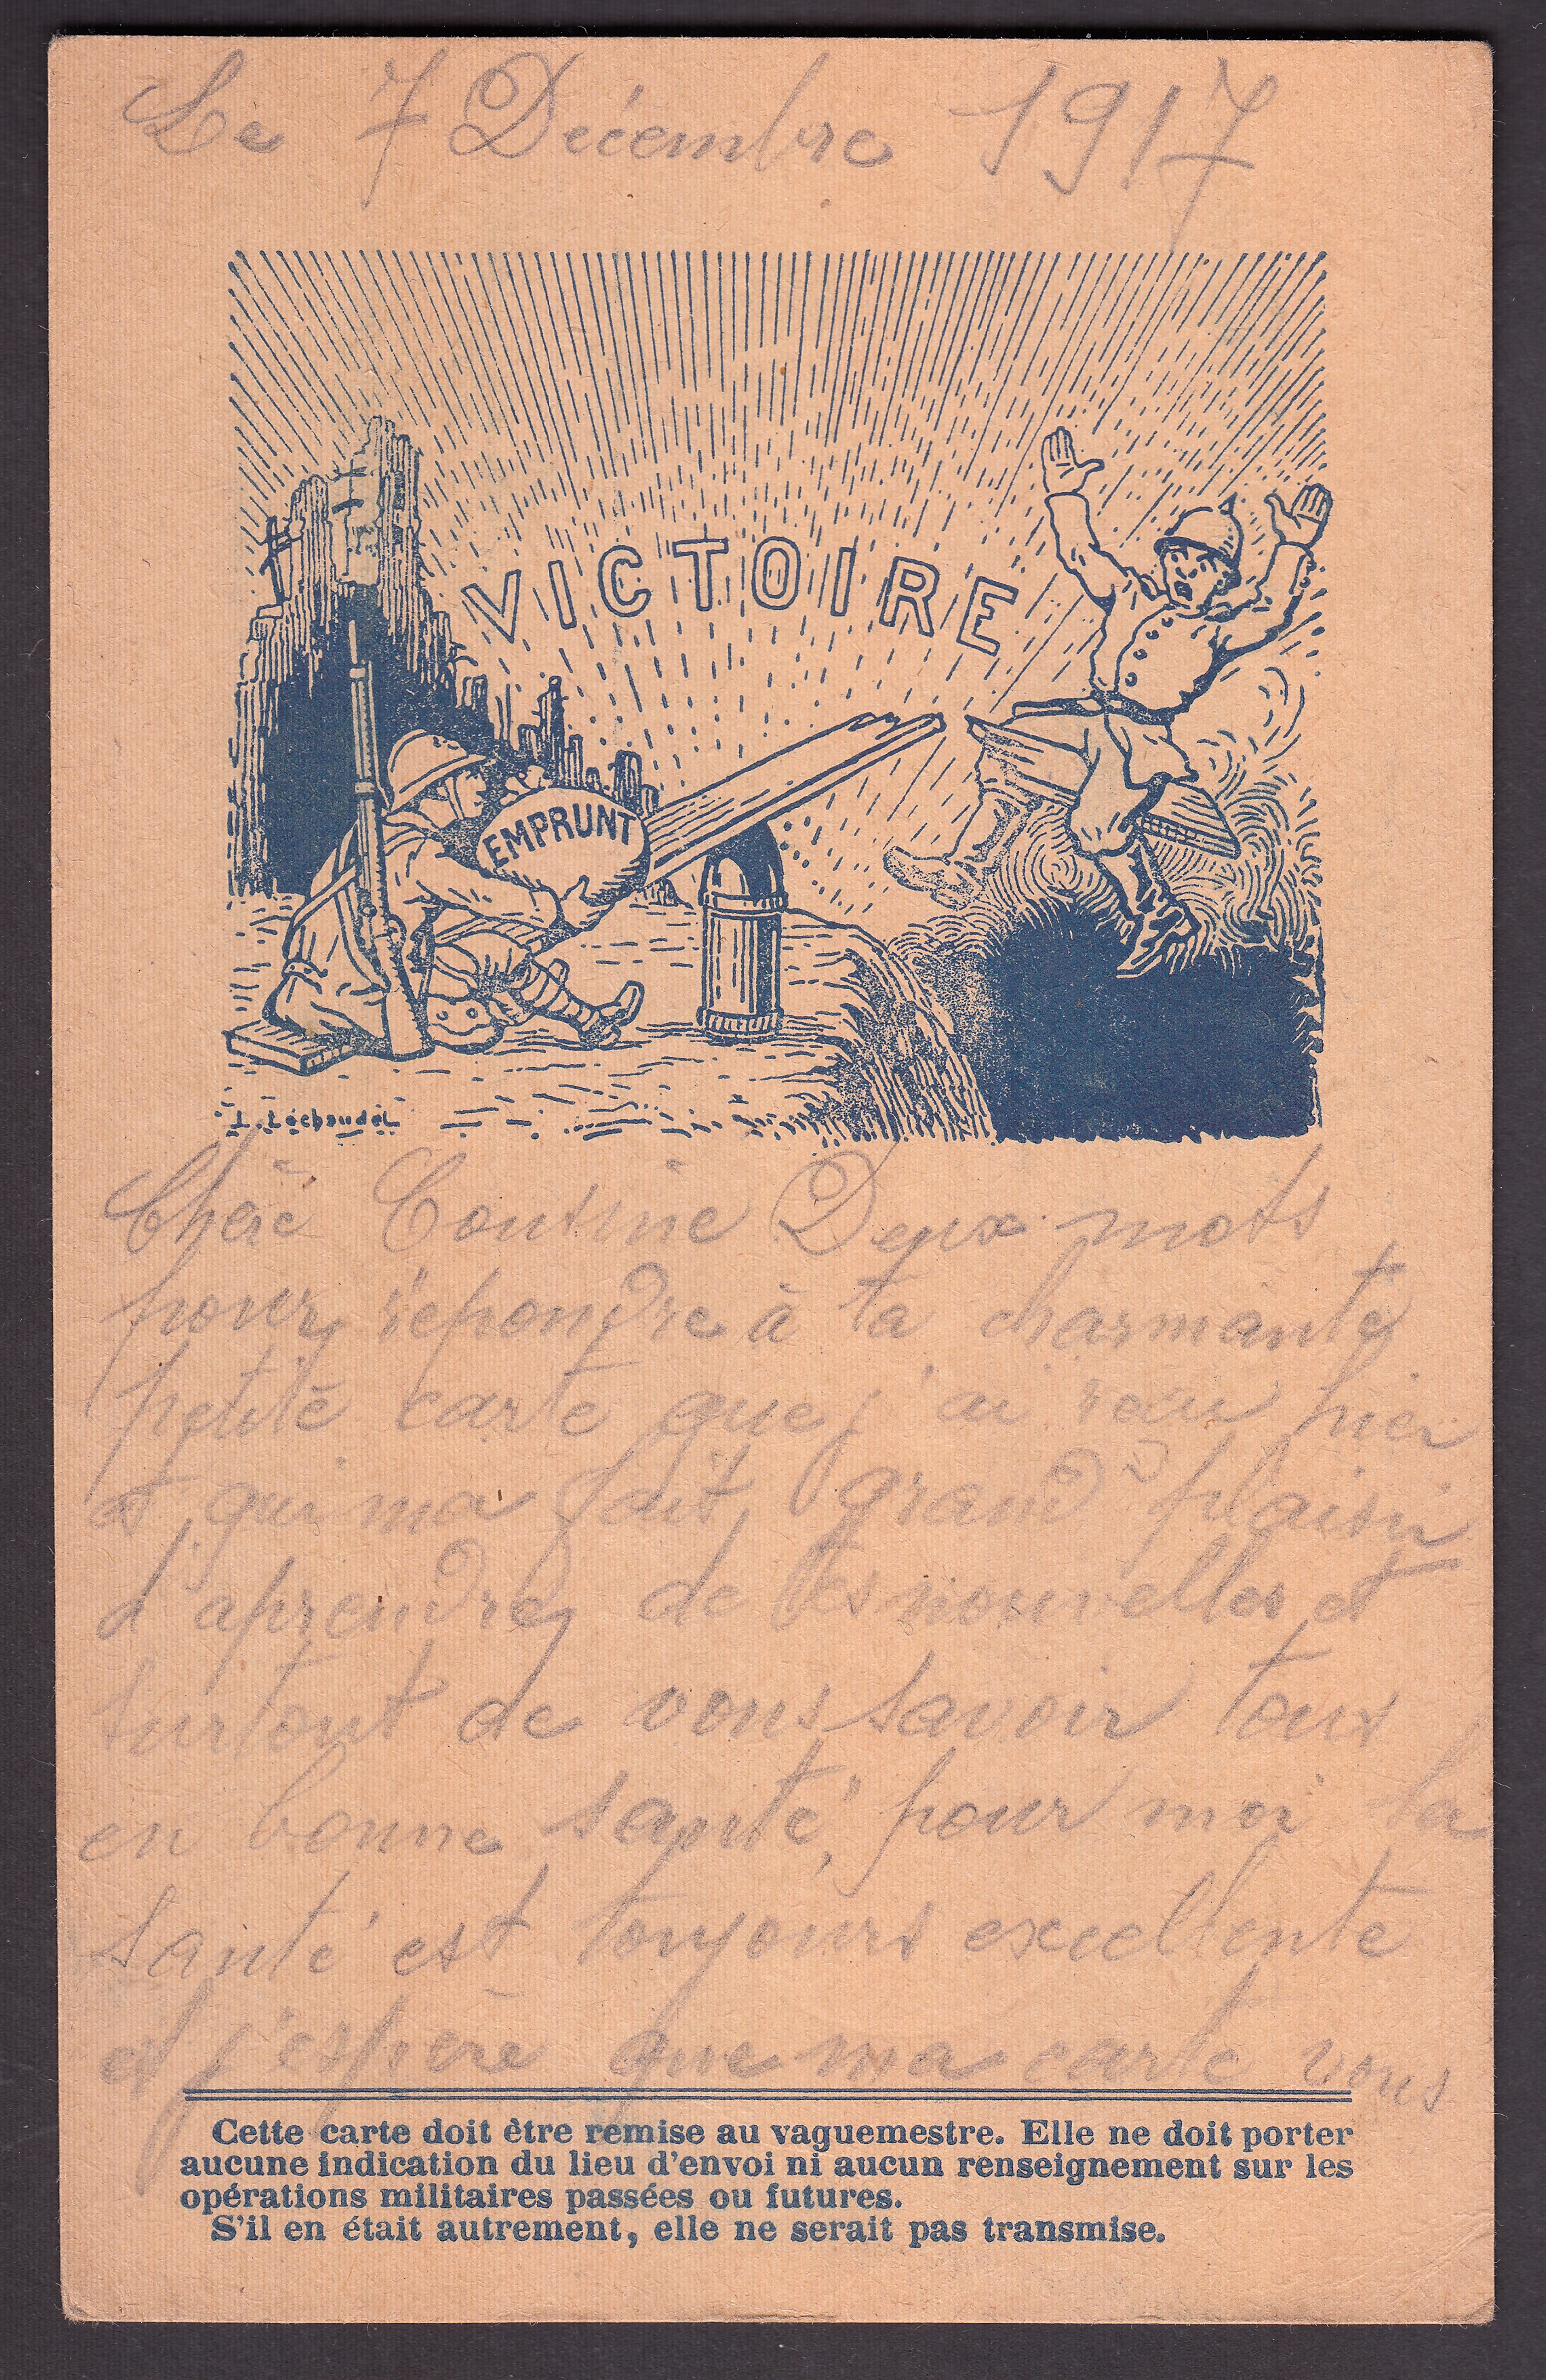 Le 7 Décembre 1917
VICTOIRE
EMPRUNT
L. Léchaudel
Chère Cousine Deux mots
pour répondre à ta charmante
petite carte que j'ai reçu hier
et qui ma fait grand plaisir
d'aprendre de tes nouvelles et
surtout de vous savoir tous
en bonne santé, pour moi la
santé est toujours excellente
et j'espère que ma carte vous
Cette carte doit être remise au vaguemestre. Elle ne doit porter
aucune indication du lieu d'envoi ni aucun renseignement sur les
opérations militaires passées ou futures.
S'il en était autrement, elle ne serait pas transmise.